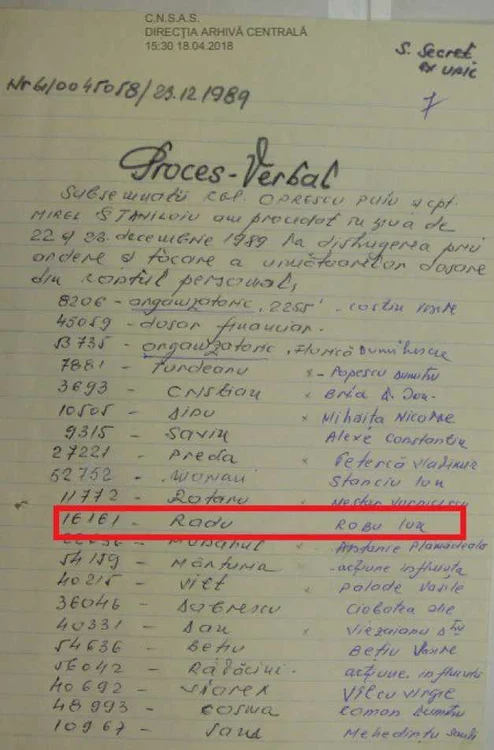 C.N.S.A.S.
DIRECŢIA ARHIVĂ CENTRALĂ
15:30 18.04.2018
S. Secret
ex unic
7
/0045058/23.12.1989
Proces-Verbal
Subsemnaţii col. OPRESCU PUIU şi cpt.
MIREL STANILOIU am procedat în ziua de
22 şi 23. decembrie 1989 la distrugerea prin
ardere şi tocare a următoarelor dosare
din fondul personal,
8206 - organizatoric, 2255
45059 - dosar financiar.
53735 - organizatoric, Florică Dumitrescu
7881 - Funduanu x - Popescu Dumitru
3693 - Cristian x Bria I. Ion.
10505 - Dinu x Mihaiţa Nicolae
9315 - Savin Alexe Constantin
27221 - Preda x Petercă Vladimir
52752 - Stanciu Ion
11772 - Rotaru x Nestor Vornicescu
16161 - Radu ROBU Ion
x Antonie Plamadeala
54159 - Mânturia - acţiune influenţă
40215 - Vilt x Palade Vasile
36046 - Dobrescu Ciobotea Ilie
40331 - Dan x
54636 - Beţiu Beţiu Vasile
56042 - Rădăcini. acţiune. influenţă
40692 - Viarex Vîlcu Virgil
48993 - Cosma Roman Dumitru
10967 - Sand Mehedintu